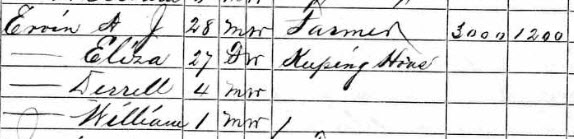 Ervin A J 28 M W Farmer 3000 1200
— Eliza 27 F W Keeping House
— Derrell 4 M W
— William 1 M W /